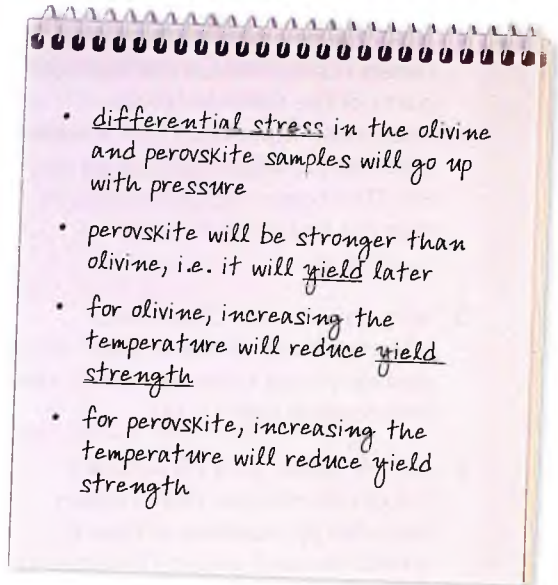 • differential stress in the olivine
and perovskite samples will go up
with pressure
• perovskite will be stronger than
olivine, i.e. it will yield later
• for olivine, increasing the
temperature will reduce yield
strength
• for perovskite, increasing the
temperature will reduce yield
strength